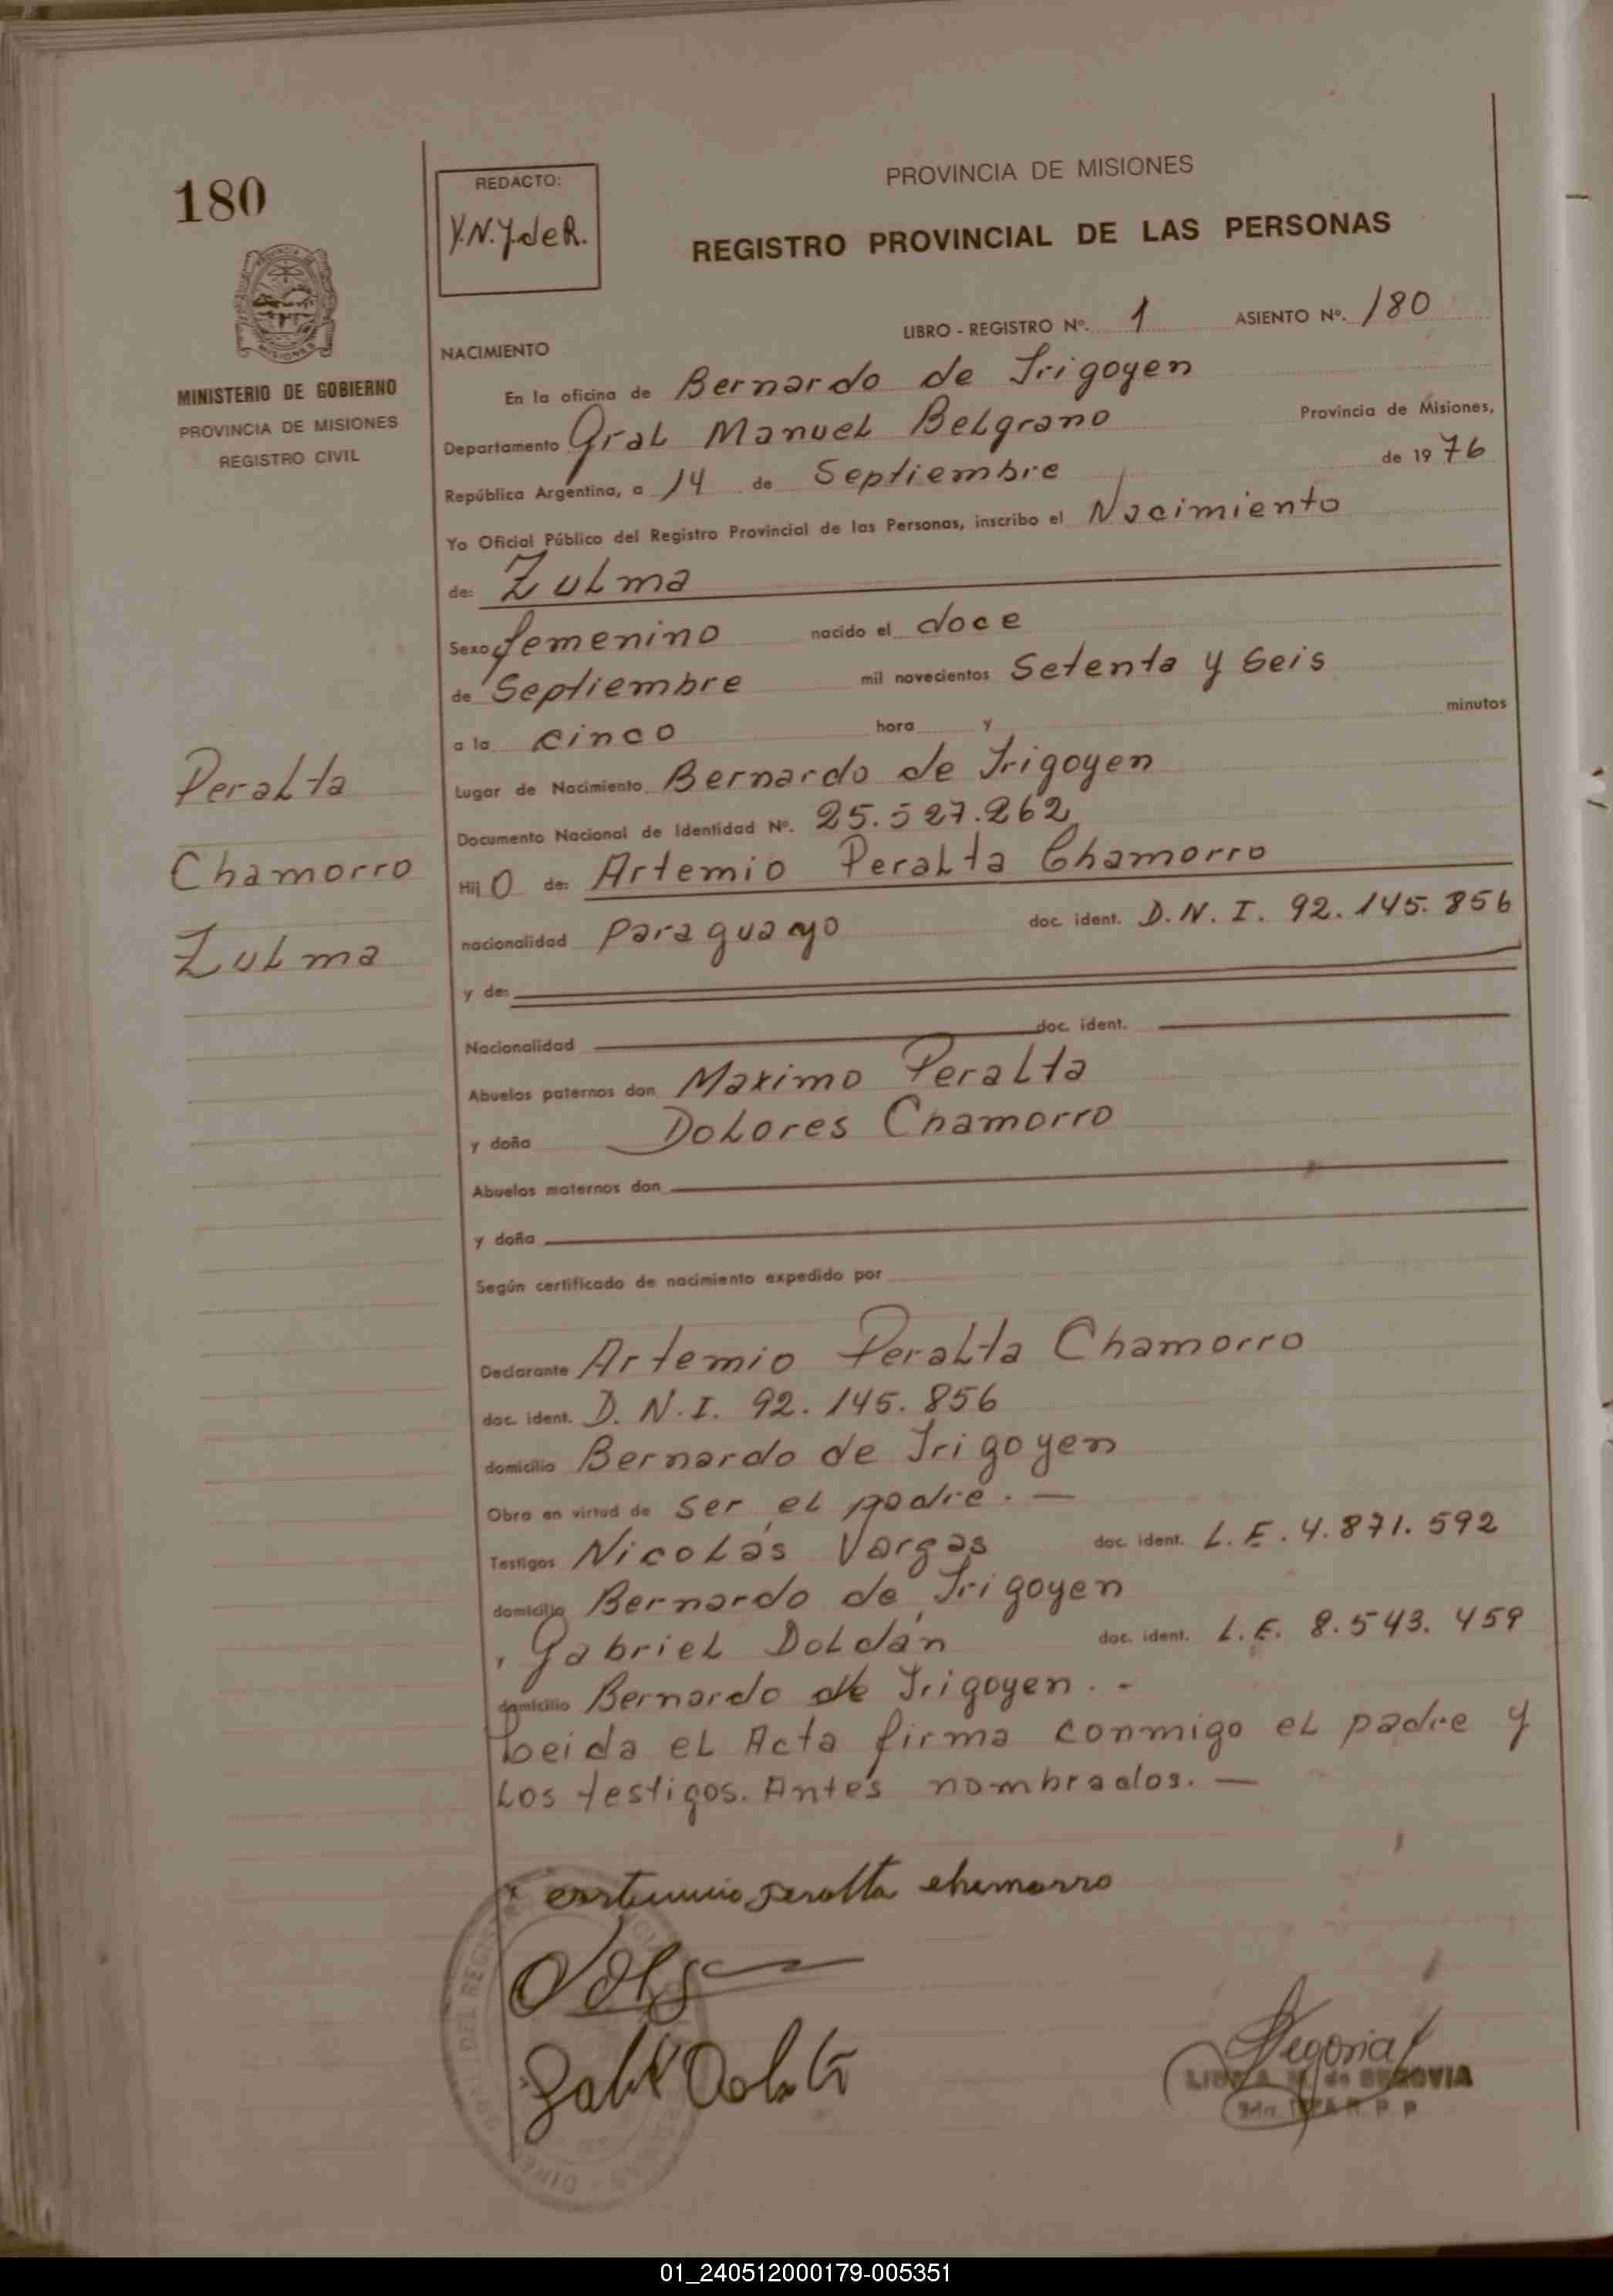 180
REDACTO:
Y.N.Y.deR.
PROVINCIA DE MISIONES
REGISTRO PROVINCIAL DE LAS PERSONAS
MINISTERIO DE GOBIERNO
PROVINCIA DE MISIONES
REGISTRO CIVIL
LIBRO - REGISTRO Nº. 1 ASIENTO Nº. 180
NACIMIENTO
En la oficina de Bernardo de Irigoyen
Departamento Gral Manuel Belgrano Provincia de Misiones,
República Argentina, a 14 de Septiembre de 19 76
Yo Oficial Público del Registro Provincial de las Personas, inscribo el Nacimiento
de: Zulma
Sexo femenino nacido el doce
de Septiembre mil novecientos Setenta y Seis
a la cinco hora y minutos
Lugar de Nacimiento Bernardo de Irigoyen
Documento Nacional de Identidad Nº. 25.527.262
Peralta
Chamorro
Zulma
Hij O de: Artemio Peralta Chamorro
nacionalidad Paraguayo doc. ident. D.N.I. 92.145.856
y de:
Nacionalidad doc. ident.
Abuelos paternos don Maximo Peralta
y doña Dolores Chamorro
Abuelos maternos don
y doña
Según certificado de nacimiento expedido por
Declarante Artemio Peralta Chamorro
doc. ident. D.N.I. 92.145.856
domicilio Bernardo de Irigoyen
Obra en virtud de ser el padre. —
Testigos Nicolás Vargas doc. ident. L.E. 4.871.592
domicilio Bernardo de Irigoyen
y Gabriel Doldán doc. ident. L.E. 8.543.459
domicilio Bernardo de Irigoyen. -
Leida el Acta firma conmigo el padre y
los testigos. Antes nombrados. —
peralta chamorro
Segovia
de SEGOVIA
01_240512000179-005351